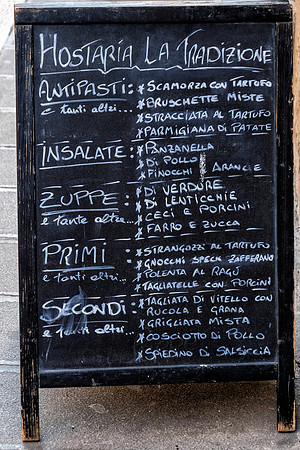 HOSTARIA LA TRADIZIONE
ANTIPASTI: * SCAMORZA CON TARTUFO
e tanti altri... * BRUSCHETTE MISTE
* STRACCIATA AL TARTUFO
* PARMIGIANA DI PATATE
INSALATE: * PANZANELLA
* DI POLLO
* PINOCCHI ARANCIE
ZUPPE: * DI VERDURE
e tante altre... * DI LENTICCHIE
* CECI E PORCINI
* FARRO E ZUCCA
PRIMI: * STRANGOZZI AL TARTUFO
e tanti altri... * GNOCCHI SPECK ZAFFERANO
* POLENTA AL RAGÚ
* TAGLIATELLE CON PORCINI
SECONDI: * TAGLIATA DI VITELLO CON
e tanti altri... RUCOLA E GRANA
* GRIGLIATA MISTA
* COSCIOTTO DI POLLO
* SPIEDINO DI SALSICCIA